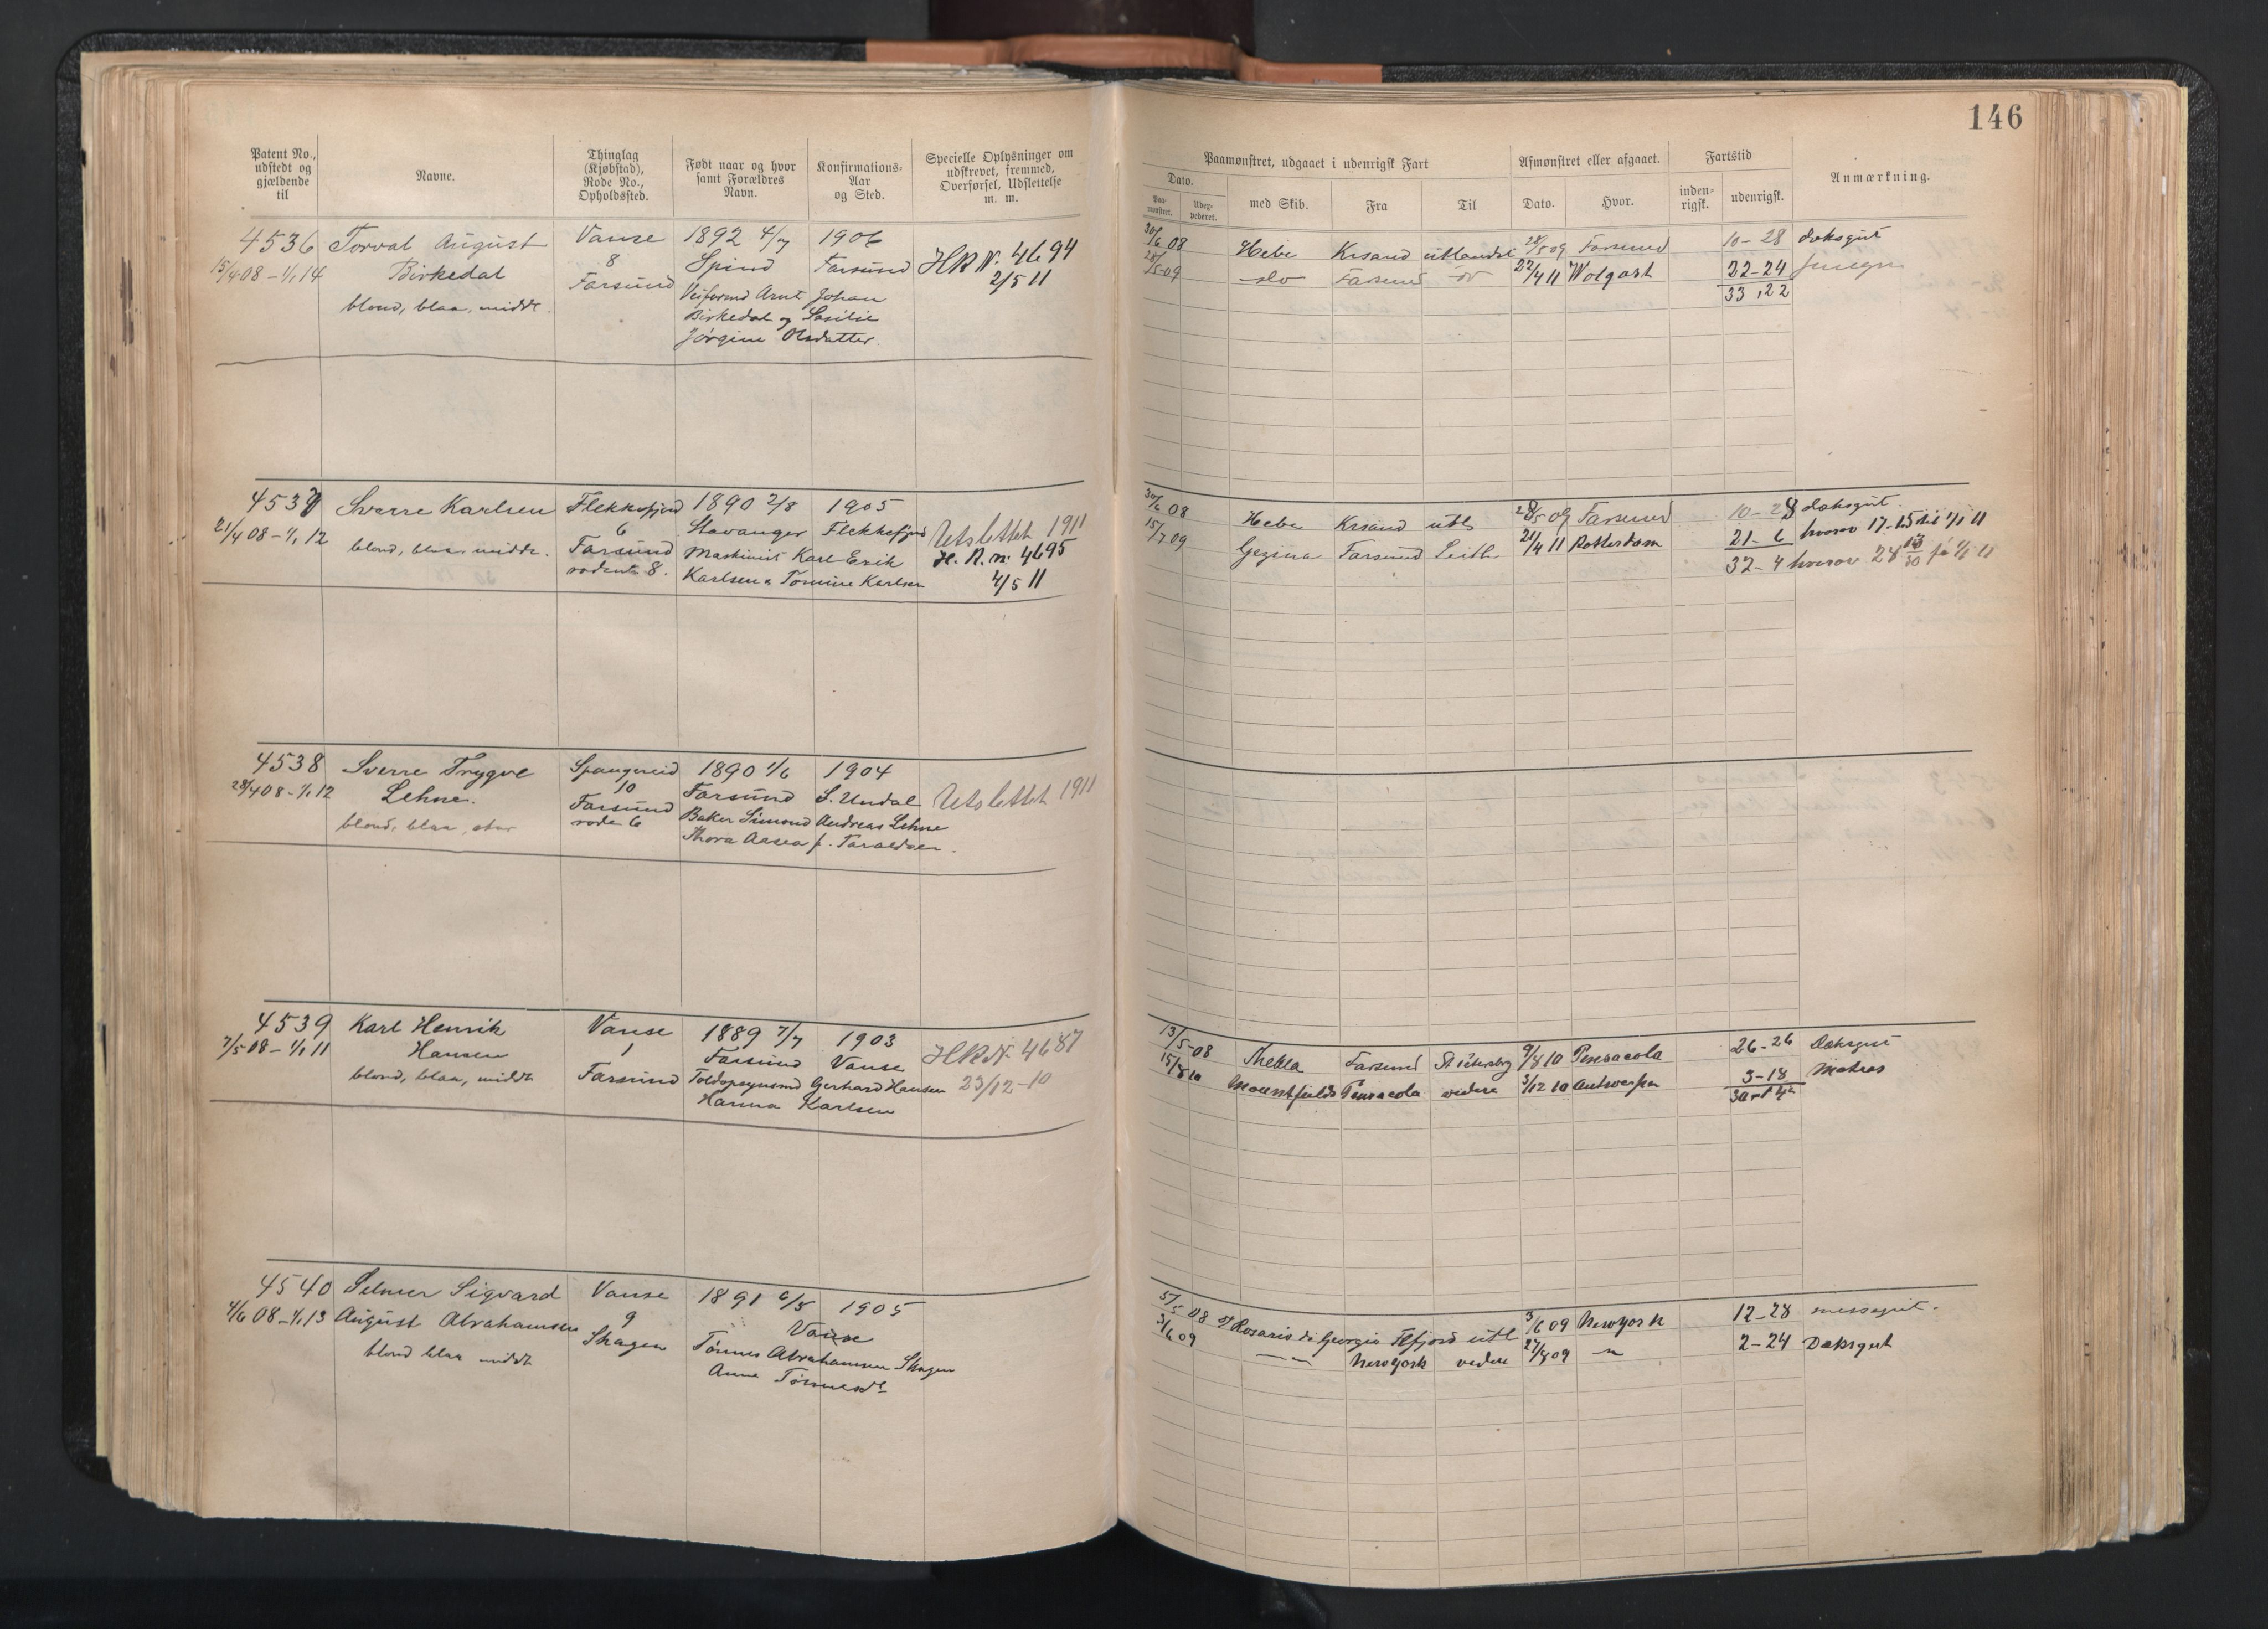 146
Patent No., udstedt og gjældende til
Navne.
Thinglag (Kjøbstad), Rode No., Opholdssted.
Født naar og hvor samt Forældres Navn.
Konfirmations-Aar og Sted.
Specielle Oplysninger om udskrevet, fremmed, Overførsel, Udslettelse m. m.
Paamønstret, udgaaet i udenrigsk Fart
Afmønstret eller afgaaet.
Fartstid
Anmærkning.
Dato.
Paa-mønstret.
Udex-pederet.
med Skib.
Fra
Til
Dato.
Hvor.
inden-rigsk.
udenrigsk.
4536 Torval August Vanse 1892 4/7 1906
15/4 08 - 1/1 14 Birkedal 8 Spind Farsund HR N. 4694
blond, blaa, middt. Farsund Veiformd Arnt Johan 2/5 11
Birkedal og Sasilie
Jørgine Olsdatter.
30/6 08 Hebe Krsand utlandet 28/5 09 Farsund 10-28 dæksgut
28/5 09 do Farsund do 22/4 11 Wolgast 22-24
33,22
4537 Sverre Karlsen Flekkefjord 1890 2/8 1905
21/4 08 - 1/1 12 6 Stavanger Flekkefjord Utslettet 1911
blond, blaa, middt. Farsund Maskinist Karl Erik H. R. nr. 4695
rodent 8. Karlsen & Tomine Karlsen 4/5 11
30/6 08 Hebe Krsand utl 28/5 09 Farsund 10-28 dæksgut.
15/7 09 Gezina Farsund Leith 21/4 11 Rotterdam 21-6 hvorav 17-15 til 1/1 11
32-4 hvorav 28 på 1/1 11
4538 Sverre Trygve Spangereid 1890 1/6 1904
28/4 08 - 1/1 12 Lehne. 10 Farsund S. Undal Utslettet 1911
blond, blaa, stor Farsund Baker Simond Andreas Lehne
rode 6 Thora Aasea f. Taraldsen.
4539 Karl Henrik Vanse 1889 7/7 1903
7/5 08 - 1/1 11 Hansen 1 Farsund Vanse HR N. 4687
blond, blaa, middt Farsund Toldopsynsmd Gerhard Hansen 23/12-10
Hanna Karlsen
13/5-08 Thekla Farsund St Petersbrg 9/8 10 Pensacola 26-26 Dæksgut
15/8 10 Mountfields Pensacola videre 3/12 10 Antwerpen 3-18 Matros
4540 Selmer Sigvard Vanse 1891 6/5 1905
4/6 08 - 1/1 13 August Abrahamsen 9 Vanse
blond blaa middt Skagen Tønnes Abrahamsen Skagen
Anne Tønnesdt
5/5 08 Rosario di Georgio Flfjord utl 3/6 09 Newyork 12-28 messegut.
3/6 09 — Newyork videre 27/8 09 — 2-24 Dæksgut